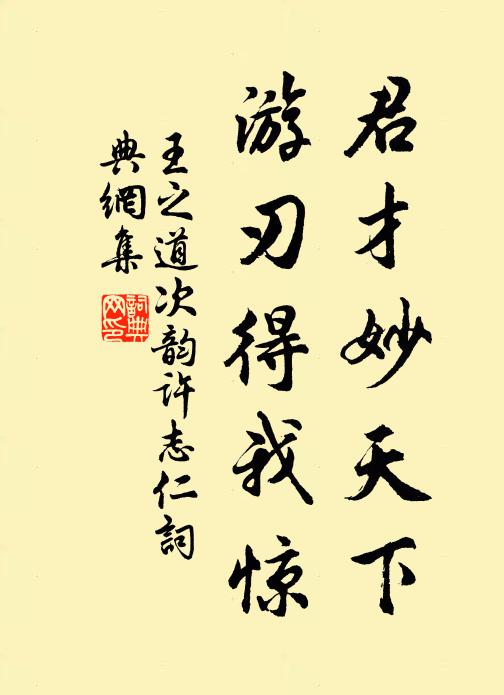 君才妙天下
游刃得我惊
王之道次韵许志仁詞
典網集
詞典网印